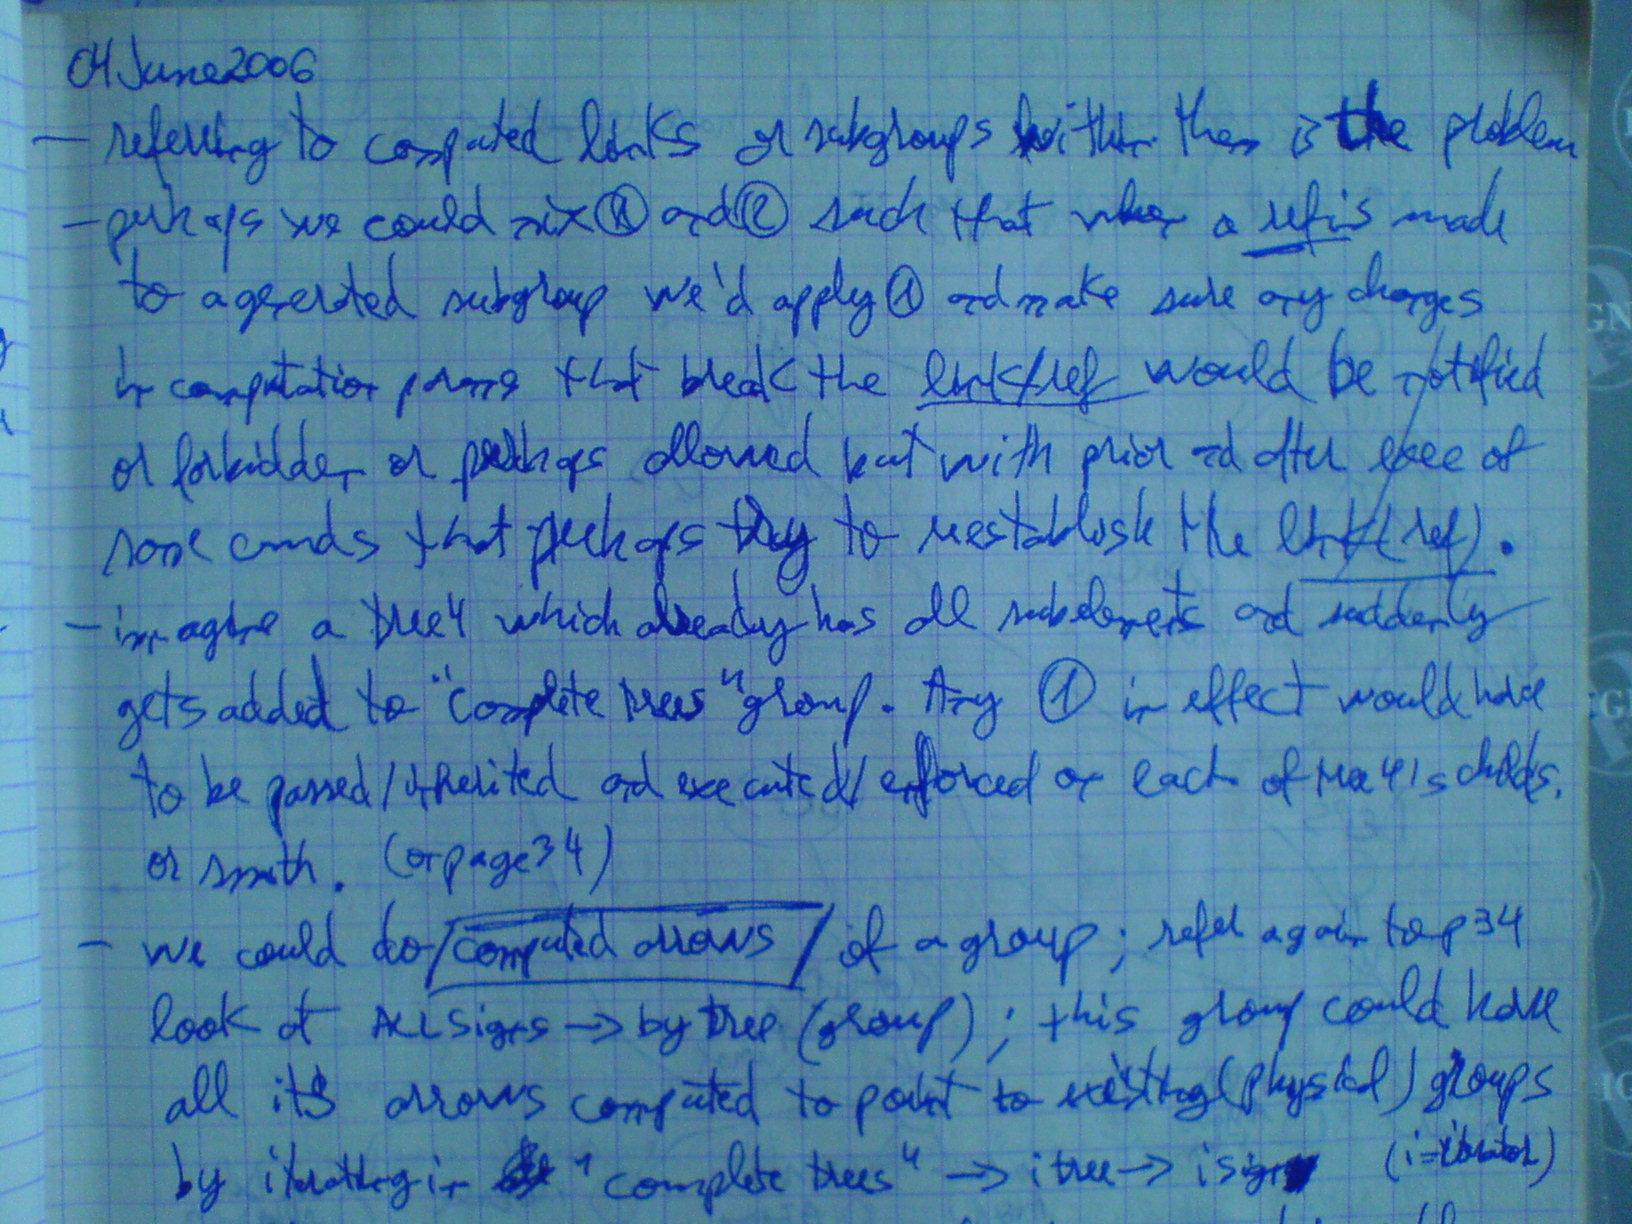 04 June 2006
- referring to computed links or subgroups within them is the problem
- perhaps we could mix and ② such that when a ref is made
to a generated subgroup we'd apply ① and make sure any changes
in computation that break the link/ref would be notified
or forbidden or perhaps allowed but with prior and after exec of
some cmds that perhaps try to reestablish the link(ref).
- imagine a tree4 which already has all subelements and suddenly
gets added to "complete trees" group. Any ① in effect would have
to be passed/inherited and executed/enforced on each of tree4's childs.
or smth. (on page 34)
- we could do /computed arrows/ of a group; refer again to p34
look at ALL signs -> by tree (group); this group could have
all its arrows computed to point to existing (physical) groups
by iterating in "complete trees" -> i tree -> i sign (i=iterator)
IGN
IGN